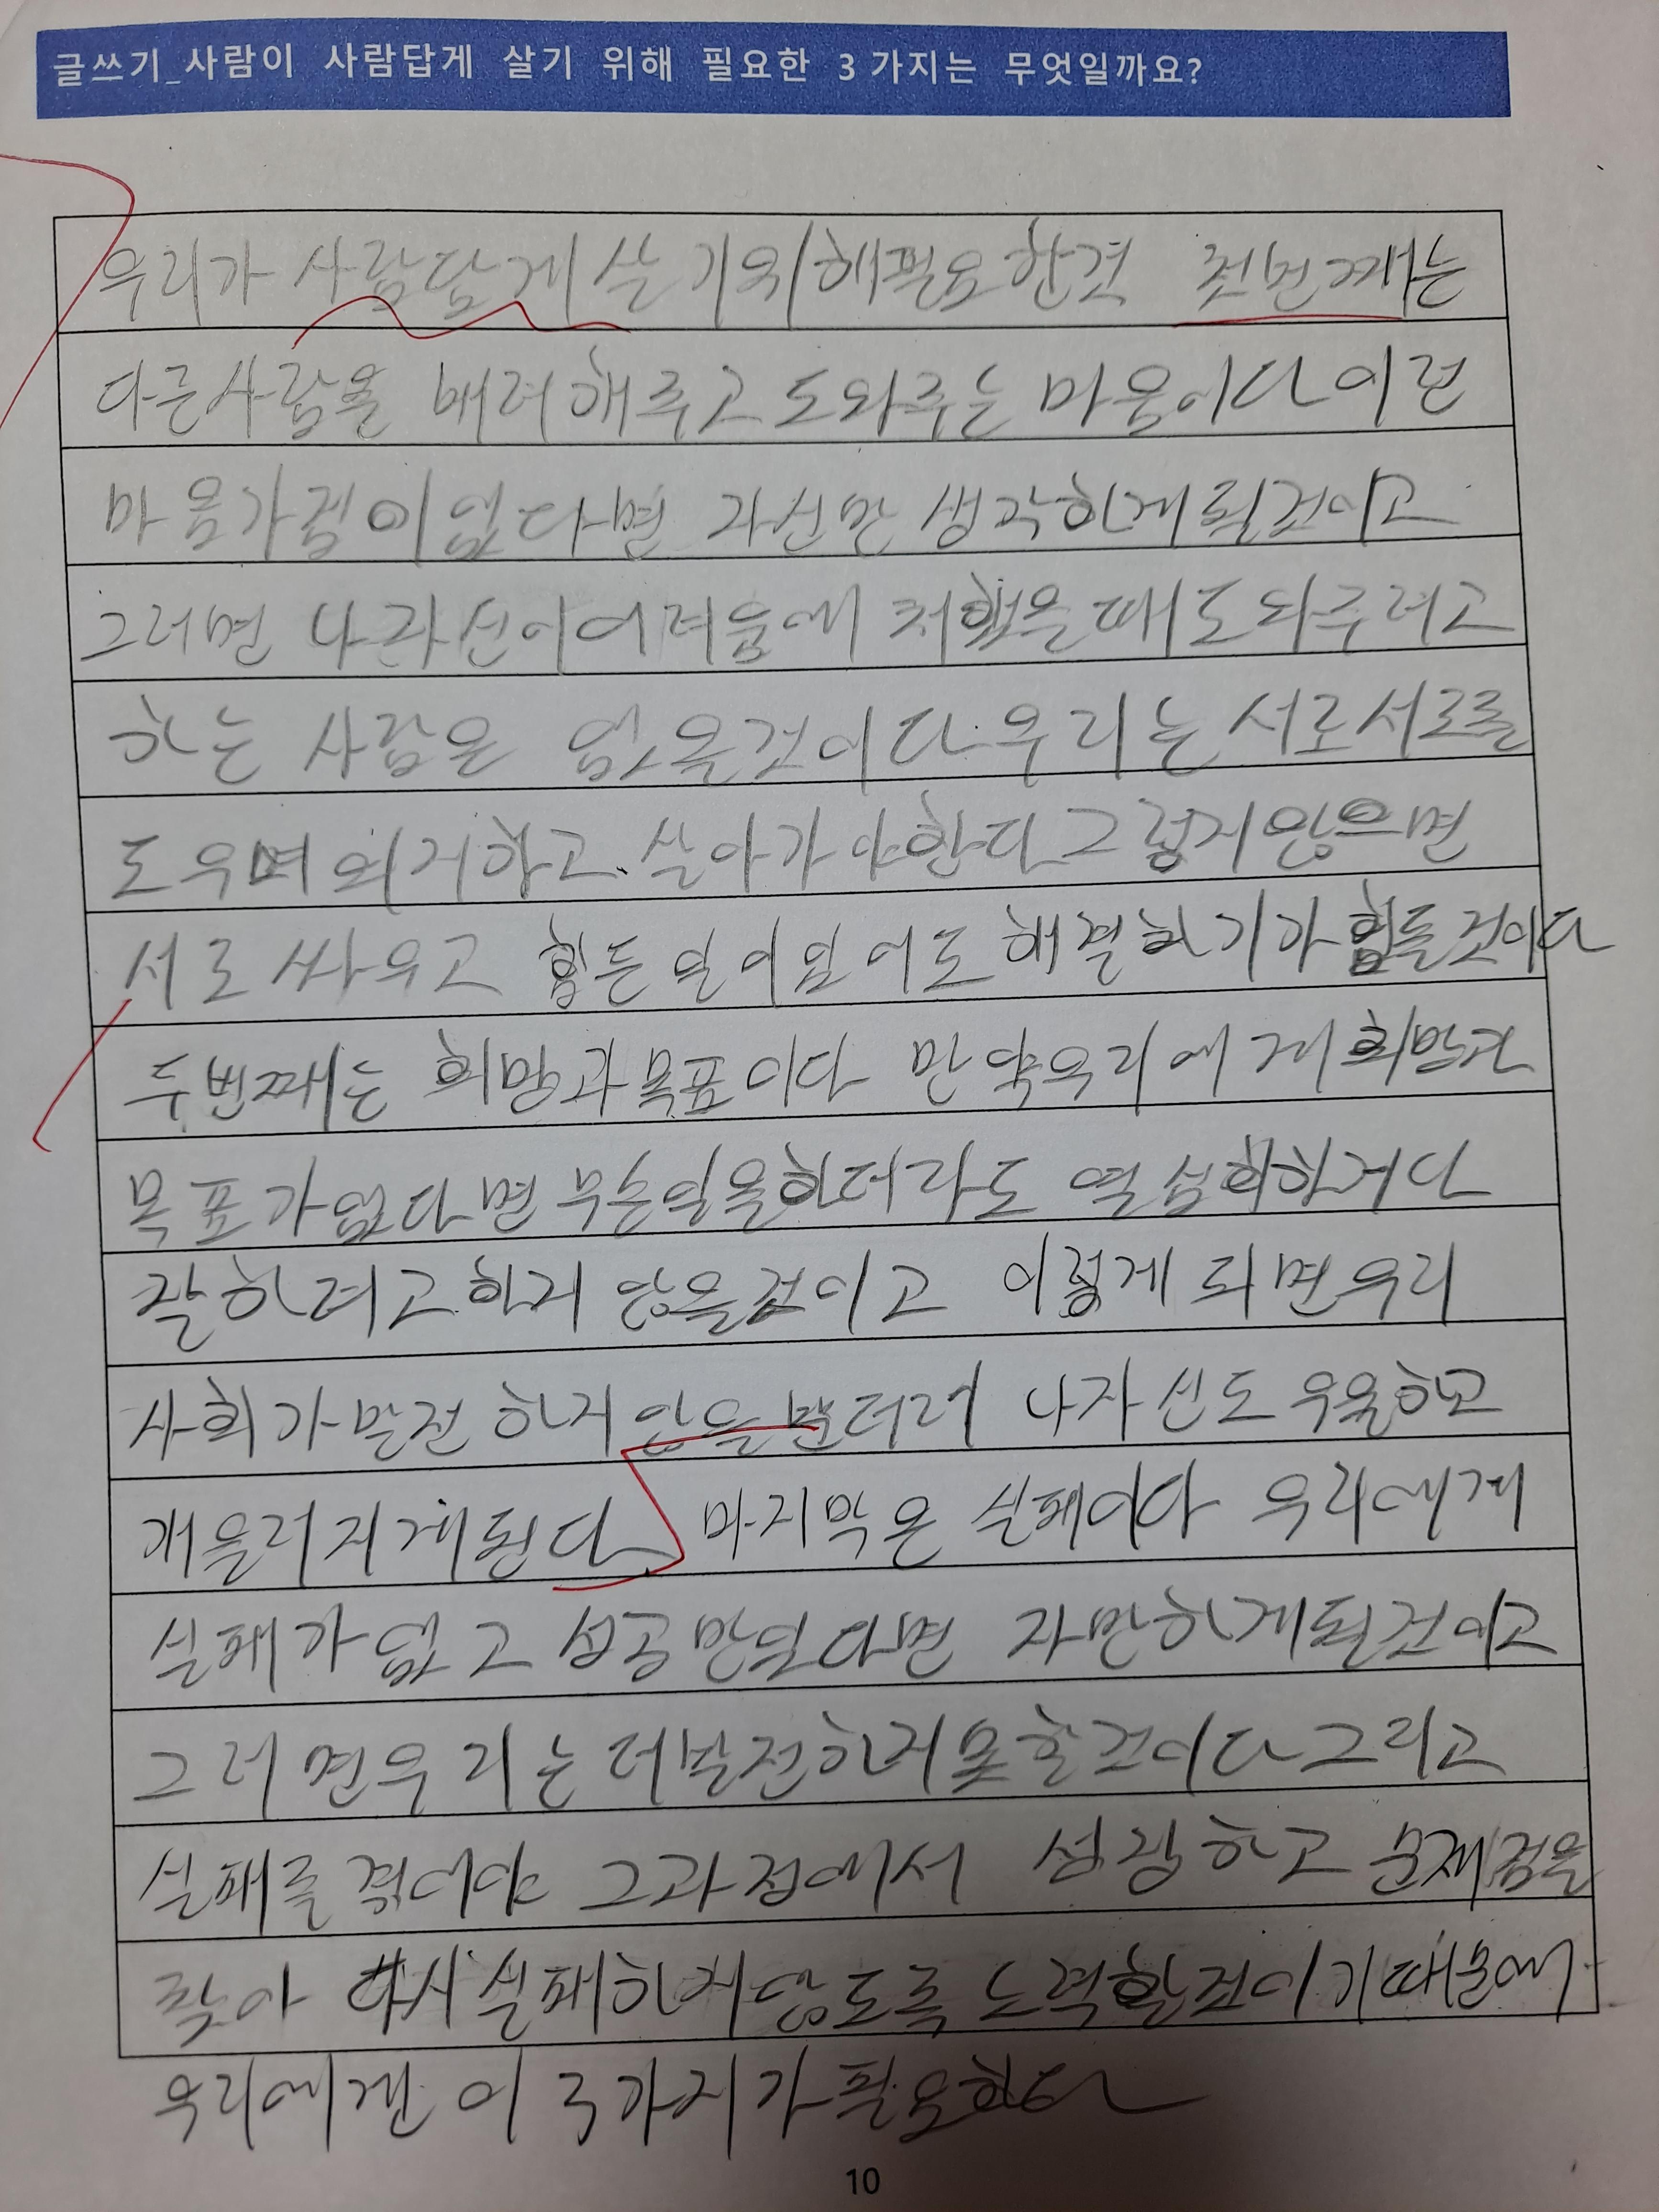 글쓰기_사람이 사람답게 살기 위해 필요한 3 가지는 무엇일까요?
우리가 사람답게 살기위해필요한것 첫번째는
다른사람을 배려해주고 도와주는 마음이다 이런
마음가짐이 없다면 자신만 생각하게 될것이고
그러면 나자신이어려움에 처했을때 도와주려고
하는 사람은 없을것이다 우리는 서로서로를
도우며 의지하고 살아가야한다 그렇지않으면
서로 싸우고 힘든일이있어도 해결하기가 힘들것이다
두번째는 희망과목표이다 만약우리에게 희망과
목표가없다면 무슨일을하더라도 열심히하거나
잘하려고하지 않을것이고 이렇게 되면우리
사회가발전 하지않을 뿐더러 나자신도 우울하고
개을러지게된다 마지막은 실패이다 우리에게
실패가없고 성공만있다면 자만하게될것이고
그러면우리는더발전하지못할것이다 그리고
실패를겪어야 그과정에서 성장하고 문제점을
찾아 다시실패하지않도록 노력할것이기때문에
우리에겐 이 3가지가 필요하다
10